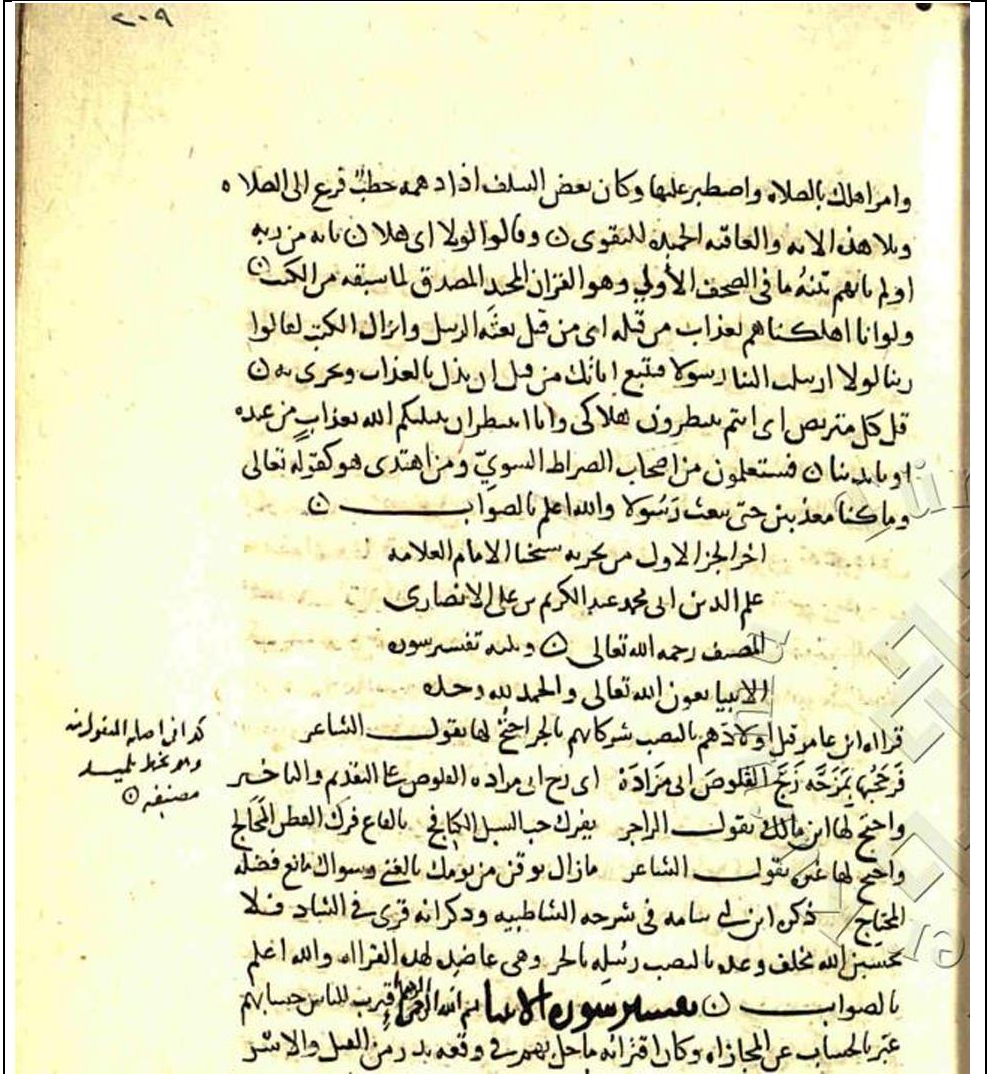 ٢٠٩
وامر اهلك بالصلاه واصطبر عليها وكان بعض السلف اذا دهمه خطب فزع الى الصلاه
وتلا هذه الايه والعاقبه الحميده للتقوى ن وقالوا لولا اى هلا ن ياته من ربه
اولم ياتهم بينه ما فى الصحف الأولى وهو القران المجيد المصدق لما سبقه من الكتب ن
ولو انا اهلكناهم بعذاب من قبله اى من قبل بعثه الرسل وانزال الكتب لقالوا
ربنا لولا ارسلت الينا رسولا فنتبع اياتك من قبل ان نذل بالعذاب ونخزى به ن
قل كل متربص اى انتم تنتظرون هلاكى وانا انتظر ان يبتليكم الله بعذاب من عنده
او بايدينا ن فستعلمون من اصحاب الصراط السويّ ومن اهتدى هو كقوله تعالى
وما كنا معذبين حتى نبعث رَسُولا والله اعلم بالصواب ن
اخر الجز الاول من تجزيه شيخنا الامام العلامه
علم الدين ابى محمد عبد الكريم بن على الانصارى
المصنف رحمه الله تعالى ن ويليه تفسير سوره
الانبيا بعون الله تعالى والحمد لله وحده
قراه ابن عامر قتل أولادَهم بالنصب شركايهم بالجر احتجّ لها بقول الشاعر
فَزَجَجْتُها بِمَزَجَّه زَجَّ القَلوصَ ابى مَزَادَة اى زج ابى مزاده القلوص على التقديم والتاخير
واحتج لها ابن مالك بقول الراجز يفرك حب السنبل الكنافج بالقاع فرك القطن المحالج
واحتج لها غيره بقول الشاعر مازال يوقن من يومك بالغنى وسواك مانع فضله
المحتاج ذكره ابن ابى شامه فى شرحه الشاطبيه وذكر انه قرى فى الشاذ فلا
تحسبن الله مخلف وعده بالنصب رسُلِه بالجر وهى عاضده لهذه القراه والله اعلم
بالصواب ن تفسير سوره الانبيا بسم الله الرحمن الرحيم اقترب للناس حسابهم
عبّر بالحساب عن المجازاه وكان اقترابه ما حل بهم فى وقعه بدر من القتل والاسر
كذا فى اصله المنقول منه
وهو بخط تلميذ
مصنفه ن